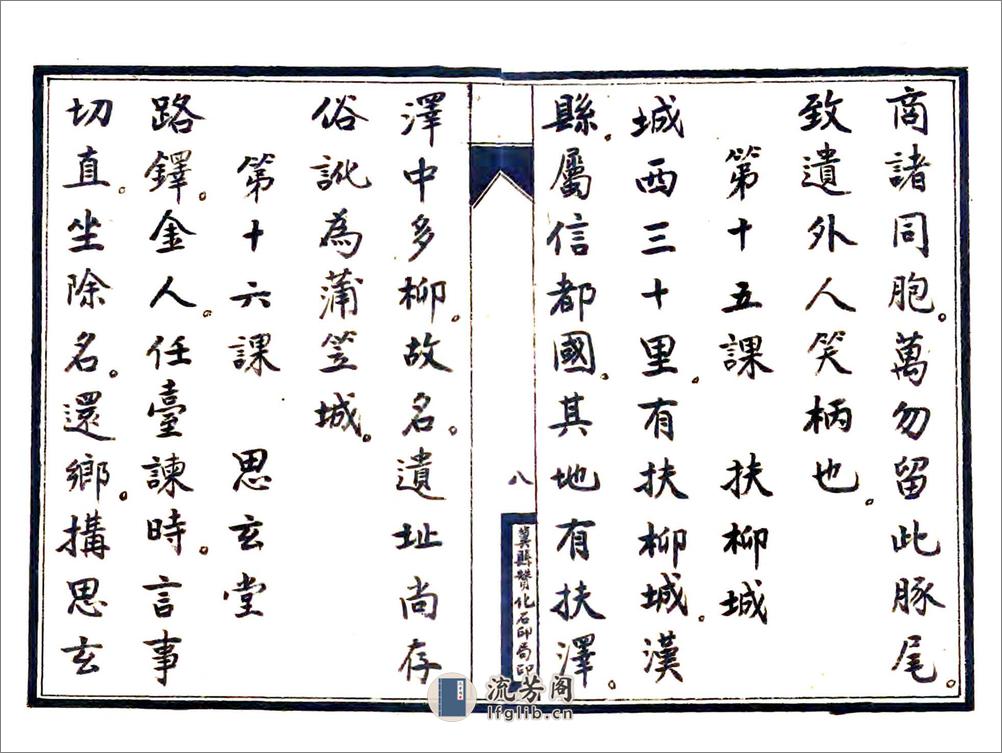 商諸同胞。萬勿留此豚尾。
致遺外人笑柄也。
第十五課　扶柳城
城西三十里。有扶柳城。漢
縣。屬信都國。其地有扶澤。
八
冀縣贊化石印局印
澤中多柳。故名。遺址尚存
俗訛為蒲笠城。
第十六課　思玄堂
路鐸。金人。任臺諫時。言事
切直。坐除名。還鄉。搆思玄
流芳阁
lfglib.cn